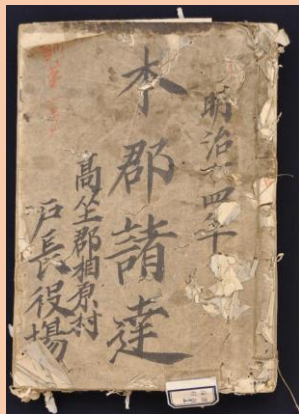 明治十四年
本郡諸達
高坐郡相原村
戸長役場